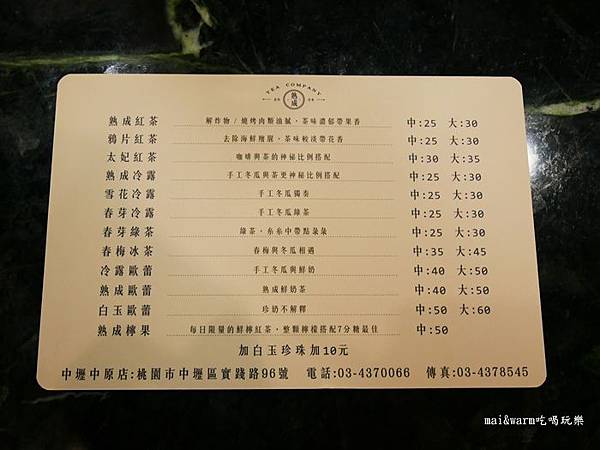 TEA COMPANY
熟成
熟成紅茶 解炸物/燒烤肉類油膩,茶味濃郁帶果香 中:25 大:30
鴉片紅茶 去除海鮮羶腥,茶味較淡帶花香 中:25 大:30
太妃紅茶 咖啡與茶的神秘比例搭配 中:30 大:35
熟成冷露 手工冬瓜與茶更神秘比例搭配 中:25 大:30
雪花冷露 手工冬瓜獨奏 中:25 大:30
春芽冷露 手工冬瓜綠茶 中:25 大:30
春芽綠茶 綠茶,糸糸中帶點彔彔 中:25 大:30
春梅冰茶 春梅與冬瓜相遇 中:35 大:45
冷露歐蕾 手工冬瓜與鮮奶 中:40 大:50
熟成歐蕾 熟成鮮奶茶 中:40 大:50
白玉歐蕾 珍奶不解釋 中:50 大:60
熟成檸果 每日限量的鮮檸紅茶,整顆檸檬搭配7分糖最佳 中:50
加白玉珍珠加10元
中壢中原店:桃園市中壢區實踐路96號 電話:03-4370066 傳真:03-4378545
mai&warm吃喝玩樂